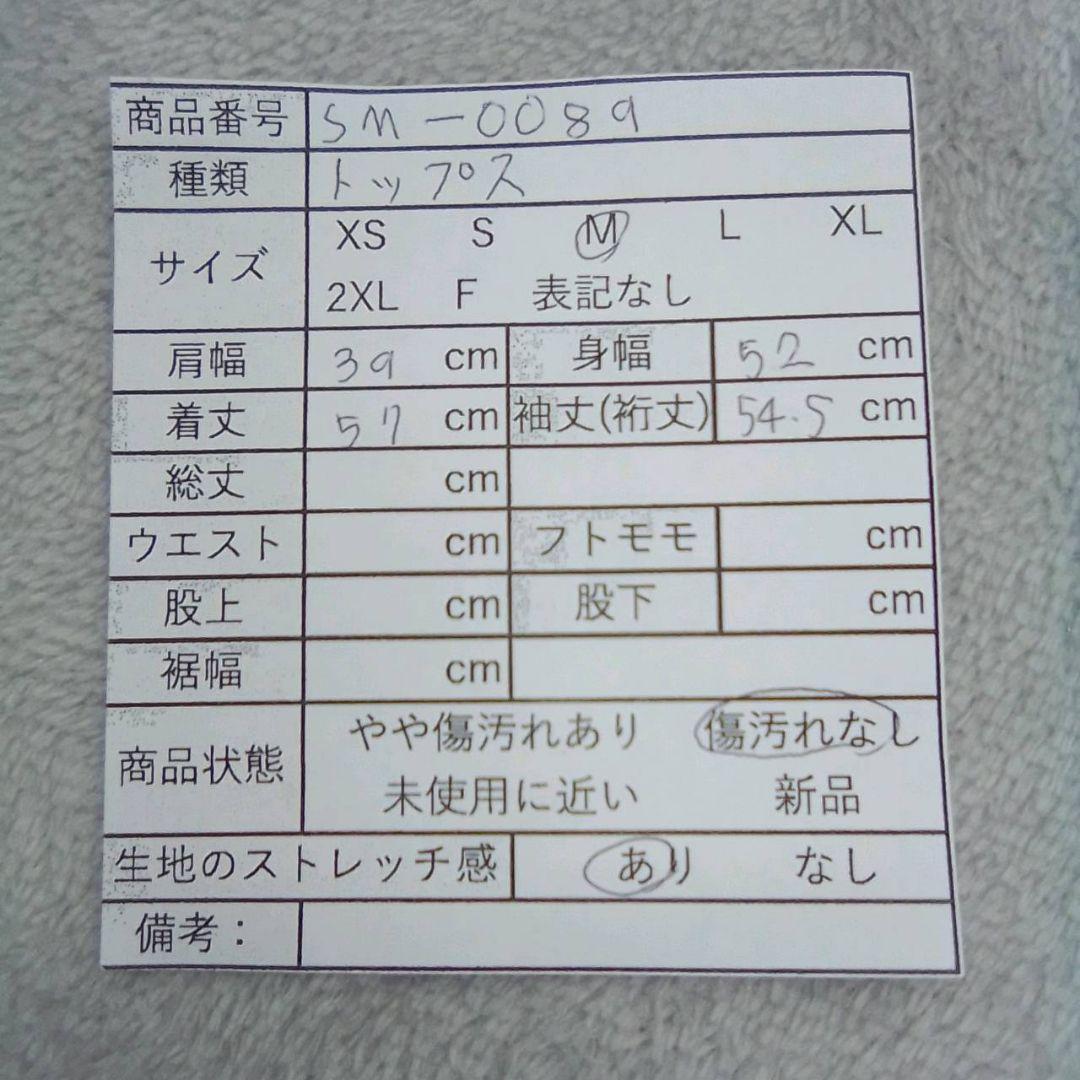 商品番号 SM-0089
種類 トップス
サイズ XS S M L XL
2XL F 表記なし
肩幅 39 cm 身幅 52 cm
着丈 57 cm 袖丈(裄丈) 54.5 cm
総丈 cm
ウエスト cm フトモモ cm
股上 cm 股下 cm
裾幅 cm
商品状態 やや傷汚れあり 傷汚れなし
未使用に近い 新品
生地のストレッチ感 あり なし
備考：